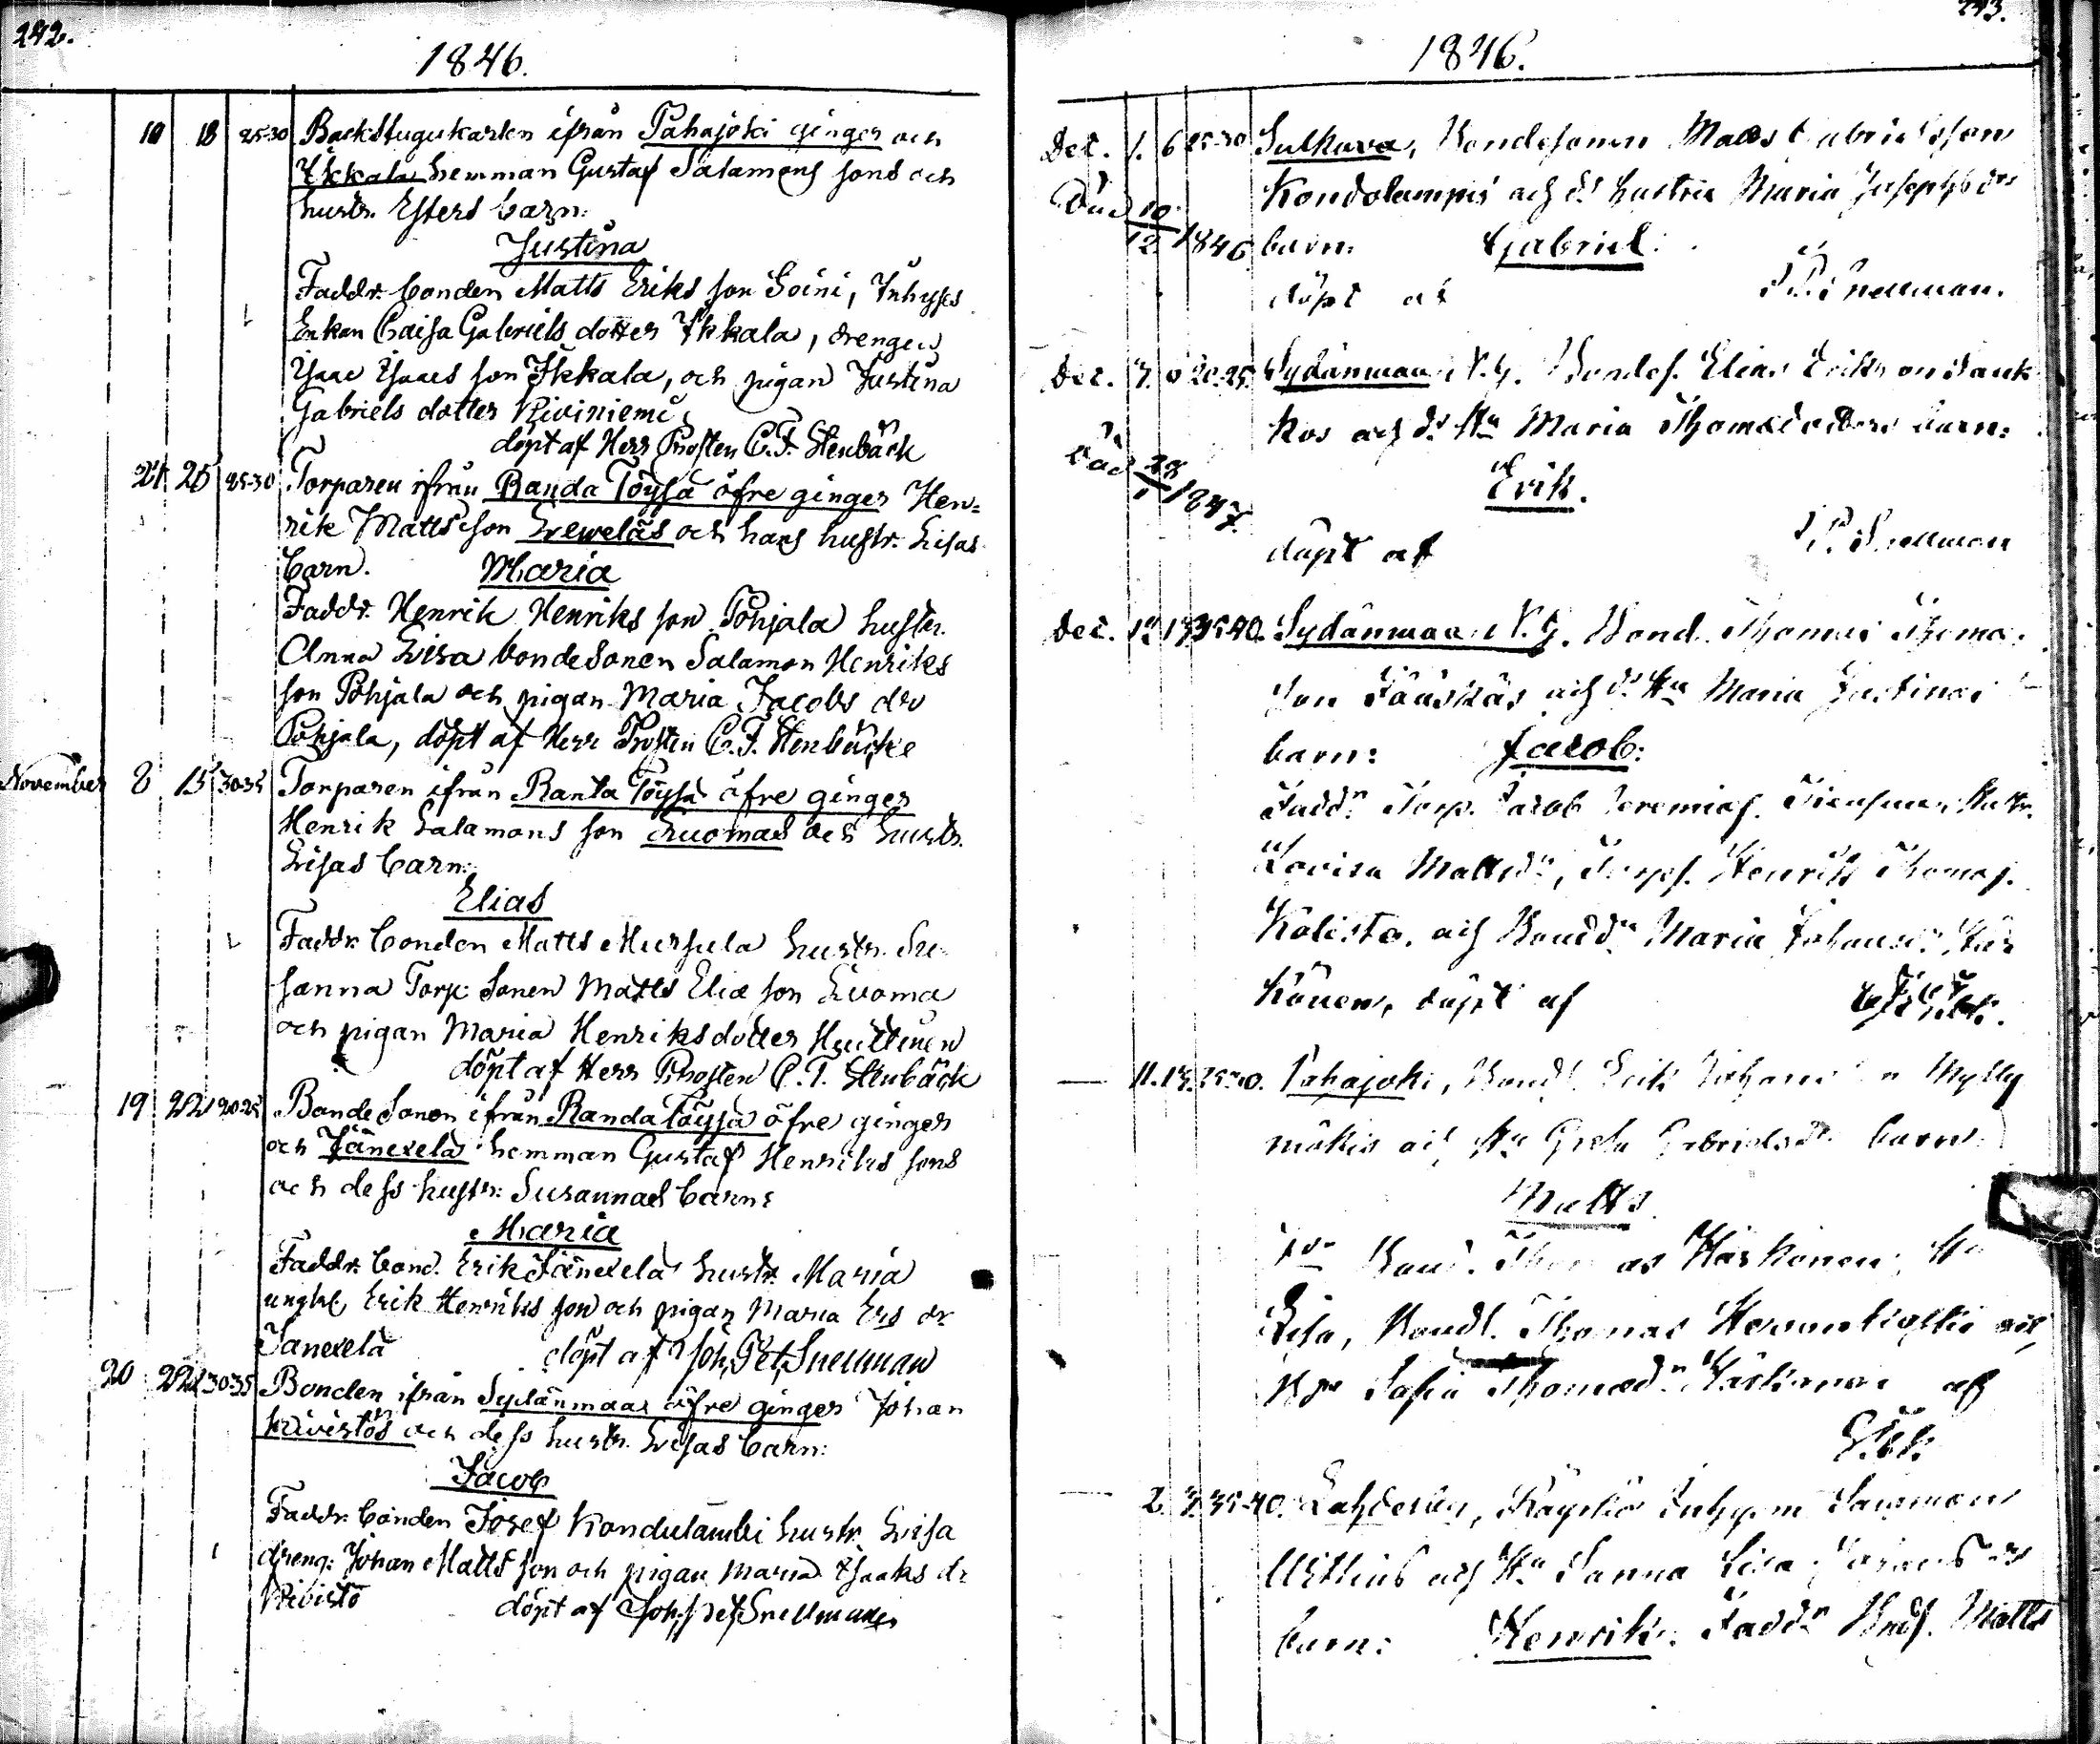 242.
1846.
10 18 25-30 Backstugukarlen ifrån Pahajoki ginger och
Ykkala hemman Gustaf Salamons sons och
hustr. Esters barn:
Justina
Faddr. bonden Matts Eriks son Soini, Inhyses
Enkan Caisa Gabriels dotter Ykkala, drengen
Isaac Isaacs son Ykkala, och pigan Justina
Gabriels dotter Kiviniemi
döpt af Herr Prosten C. F. Stenbäck
21 25 25-30 Torparen ifrån Randa Töysä öfre ginger Hen=
rik Matts son Lewelās och hans hustr. Lisas
barn. Maria
Faddr. Henrik Henriks son Pohjala hustr.
Anna Lisa bonde Sonen Salamon Henriks
son Pohjala och pigan Maria Jacobs dr
Pohjala, döpt af Herr Prosten C. F. Stenbäck
November 8 15 30-35 Torparen ifrån Ranta Töysä öfre ginger
Henrik Salamons son Luomas och hustr.
Lisas barn:
Elias
Faddr. bonden Matts Mursula hustr. Su
sanna Torp. Sonen Matts Elia son Luoma
och pigan Maria Henriksdotter Huttunen
döpt af Herr Prosten C. F. Stenbäck
19 22 20-25 Bonde Sonen ifrån Randa Töysä öfre ginger
och Jänexelä hemman Gustaf Henriks sons
och dess hustr: Susannas barn:
Maria
Faddr. bond. Erik Jänexelä hustr. Maria
ungkl. Erik Henriks son och pigan Maria Ers dr
Janexelä döpt af Joh. Pet. Snellman
20 22 30-35 Bonden ifrån Sydänmaa öfre ginger Johan
Kivistös och dess hustr. Lisas barn:
Jacob
Faddr. bonden Josef Kondulambi hustr. Lisa
dreng: Johan Matts son och pigan Maria Isaaks dr
Kivistö döpt af Joh. Pet. Snellman
243.
1846.
Dec. 1. 6 25-30 Sulkava, Bondesonen Matts Gabrielsson
Kondolampis och ds hustru Maria Josephsdrs
Död 10/12 1846 barn: Gabriel.
döpt af J. P. Snellman.
Dec. 7. 20-25. Sydänmaa N. G. Bondes. Elias Erikson
kos och ds Hu Maria Thomædotters barn:
Död 28/1 1847. Erik.
döpt af J. P. Snellman
Dec. 12 13 35-40. Sydänmaa N. G. Bond. Thomas Thomæ
son Sääskäs och ds Hu Maria Justinas
barn: Jacob:
Faddr Torp. Jacob Jeremiæs. Hustr.
Lovisa Mattsdr, Torps. Henrik Thomæs.
Kalisto. och Bondd. Maria Johansdr
könen, döpt af
11. 13. 25-30. Pahajoki, Bonds. Erik Mylly
mäkis och Hu Greta Gabrielsdrs barn
Matts.
Fdr Bond. Thomas Härkönen, Hu
Lisa, Bonds. Thomas och
Sofia Thomædr Härkönen af
2. 3. 35-40. Lahdesby, Käyrkö Inhysm Sammon
och Hu Sanna Lisa
barn: Henrik. Faddr Bds. Matts